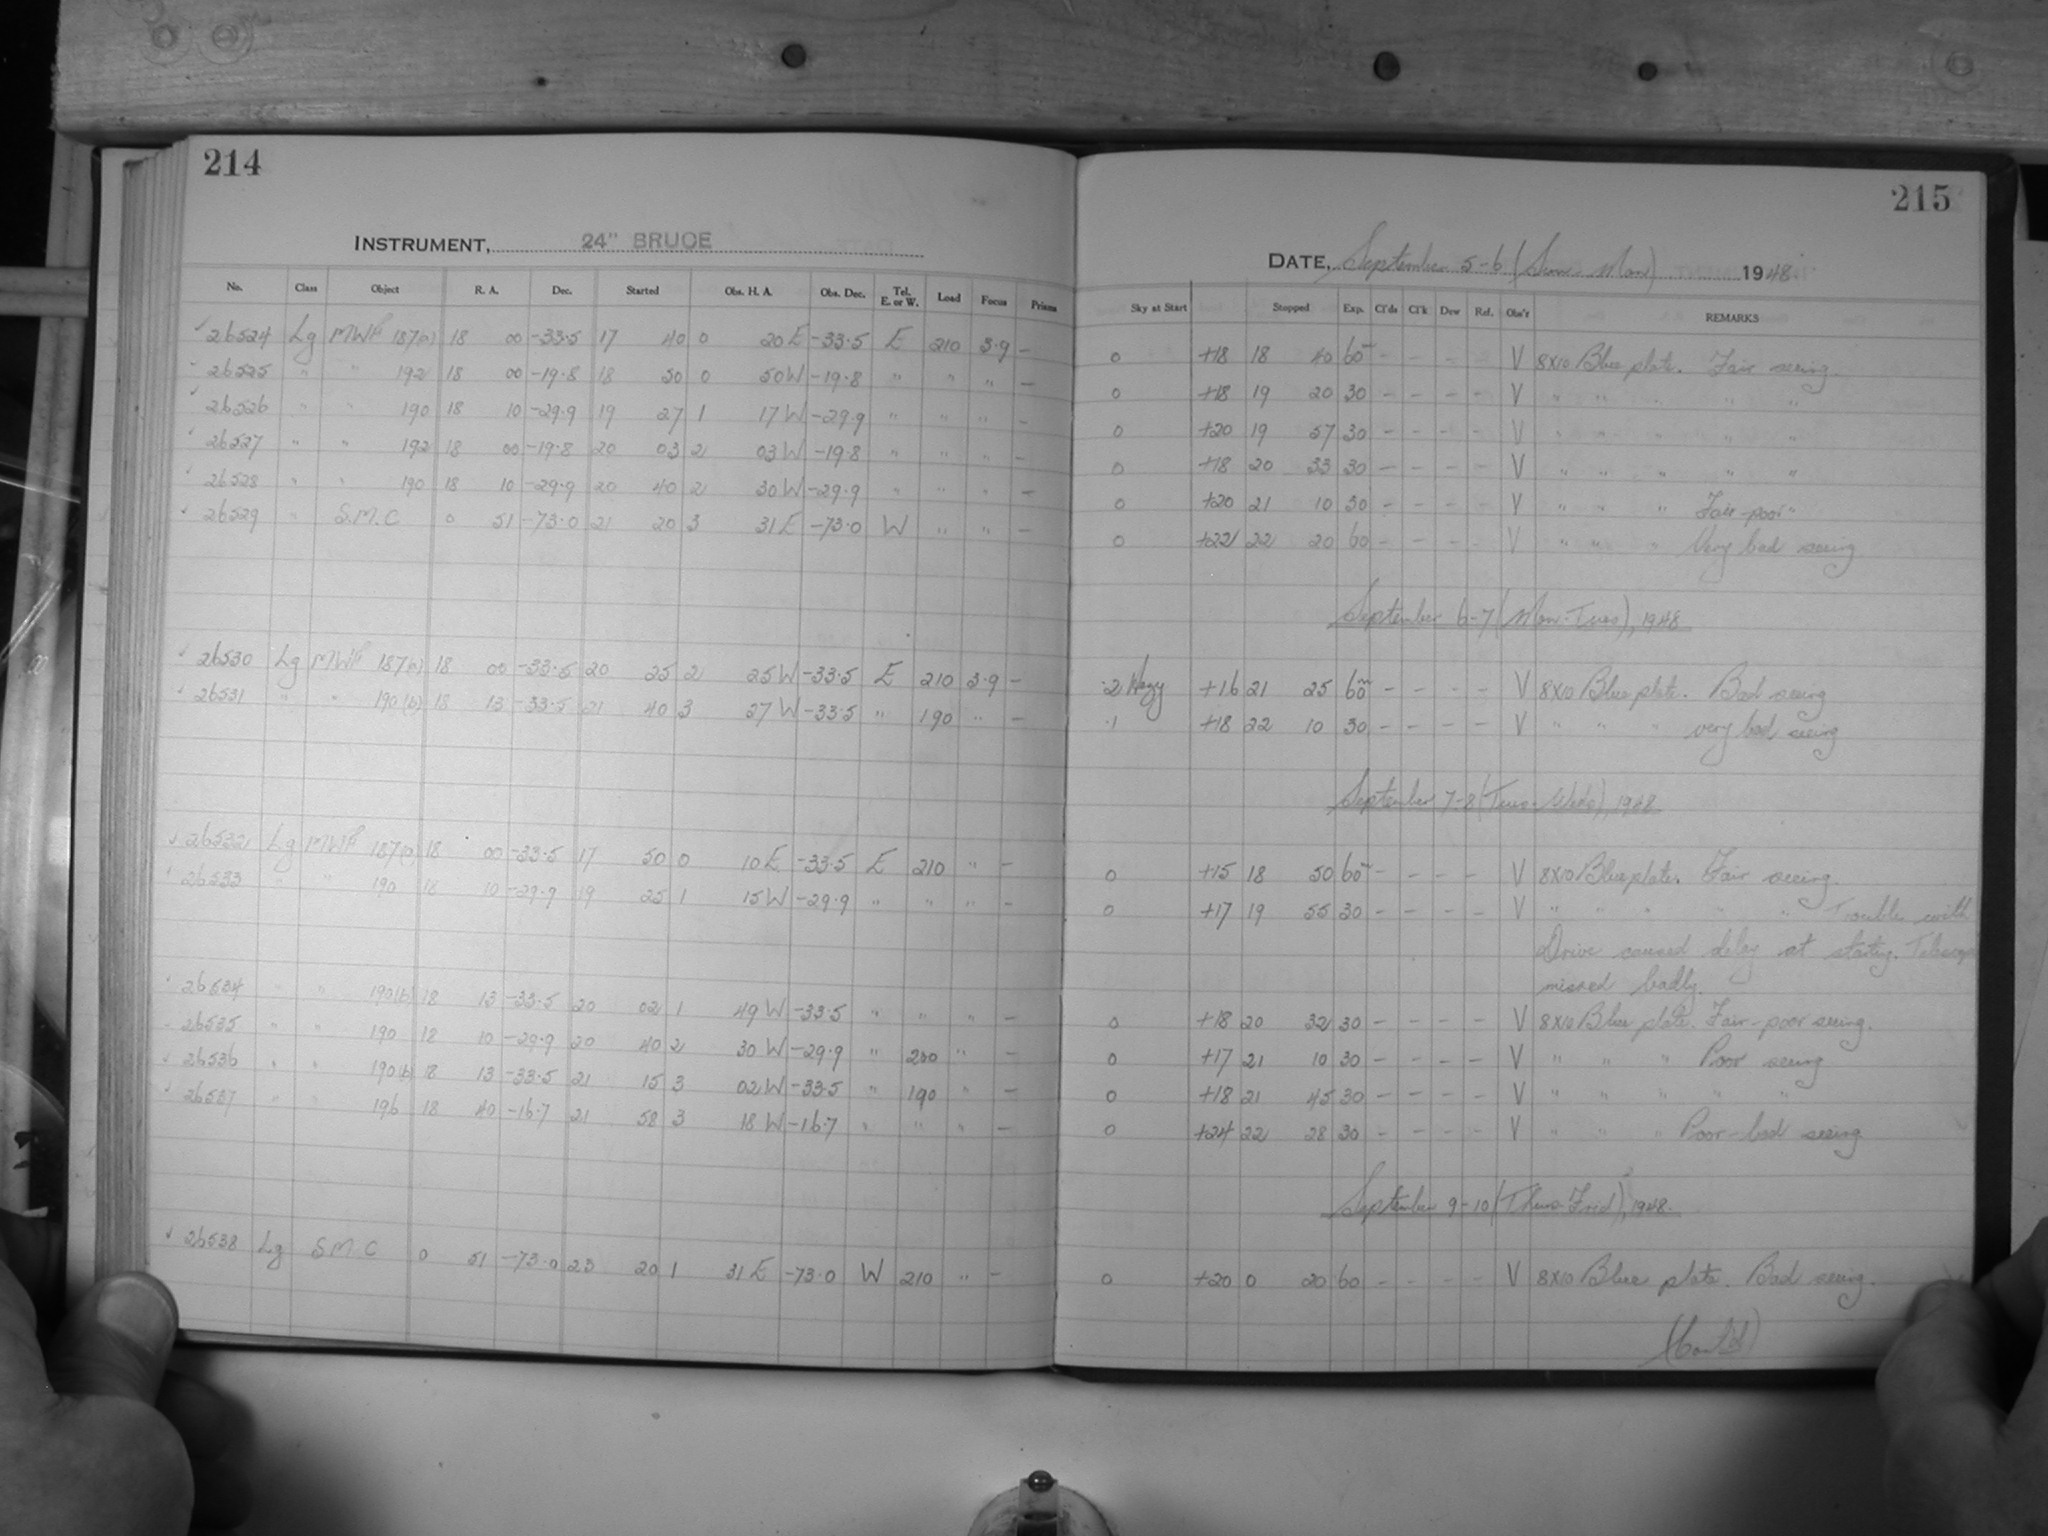 214
INSTRUMENT, 24" BRUCE
No. Class Object R. A. Dec. Started Obs. H. A. Obs. Dec. Tel. E. or W. Load Focus Prisms
26524 Lg MWF 187(a) 18 00 -33.5 17 40 0 20 E -33.5 E 210 3.9 -
26525 " " 192 18 00 -19.8 18 50 0 50 W -19.8 " " " -
26526 " " 190 18 10 -29.9 19 27 1 17 W -29.9 " " " -
26527 " " 192 18 00 -19.8 20 03 2 03 W -19.8 " " " -
26528 " " 190 18 10 -29.9 20 40 2 30 W -29.9 " " " -
26529 " S.M.C 0 51 -73.0 21 20 3 31 E -73.0 W " " -
26530 Lg MWF 187(a) 18 00 -33.5 20 25 2 25 W -33.5 E 210 3.9 -
26531 " " 190(b) 18 13 -33.5 21 40 3 27 W -33.5 " 190 " -
26532 Lg MWF 187(a) 18 00 -33.5 17 50 0 10 E -33.5 E 210 " -
26533 " " 190 18 10 -29.9 19 25 1 15 W -29.9 " " " -
26534 " " 190(b) 18 13 -33.5 20 02 1 49 W -33.5 " " " -
26535 " " 190 18 10 -29.9 20 40 2 30 W -29.9 " 200 " -
26536 " " 190(b) 18 13 -33.5 21 15 3 02 W -33.5 " 190 " -
26537 " " 196 18 40 -16.7 21 58 3 18 W -16.7 " " " -
26538 Lg S.M.C 0 51 -73.0 23 20 1 31 E -73.0 W 210 " -
215
DATE, September 5-6 (Sun-Mon) 1948
Sky at Start Stopped Exp. Cl'ds Cl'k Dew Ref. Obs'r REMARKS
0 +18 18 40 60m - - - - V 8x10 Blue plate. Fair seeing.
0 +18 19 20 30 - - - - V " " " " "
0 +20 19 57 30 - - - - V " " " " "
0 +18 20 33 30 - - - - V " " " " "
0 +20 21 10 30 - - - - V " " " Fair-poor "
0 +22 22 20 60 - - - - V " " " Very bad seeing
September 6-7 (Mon-Tues), 1948
.2 Hazy +16 21 25 60m - - - - V 8x10 Blue plate. Bad seeing
.1 +18 22 10 30 - - - - V " " " very bad seeing
September 7-8 (Tues-Weds), 1948
0 +15 18 50 60m - - - - V 8x10 Blue plate. Fair seeing.
0 +17 19 55 30 - - - - V " " " " " Trouble with
Drive caused delay at starting. Telescope
missed badly.
0 +18 20 32 30 - - - - V 8x10 Blue plate. Fair-poor seeing.
0 +17 21 10 30 - - - - V " " " Poor seeing
0 +18 21 45 30 - - - - V " " " " "
0 +24 22 28 30 - - - - V " " " Poor-bad seeing.
September 9-10 (Thurs-Frid), 1948.
0 +20 0 20 60 - - - - V 8x10 Blue plate. Bad seeing.
(Cont'd)